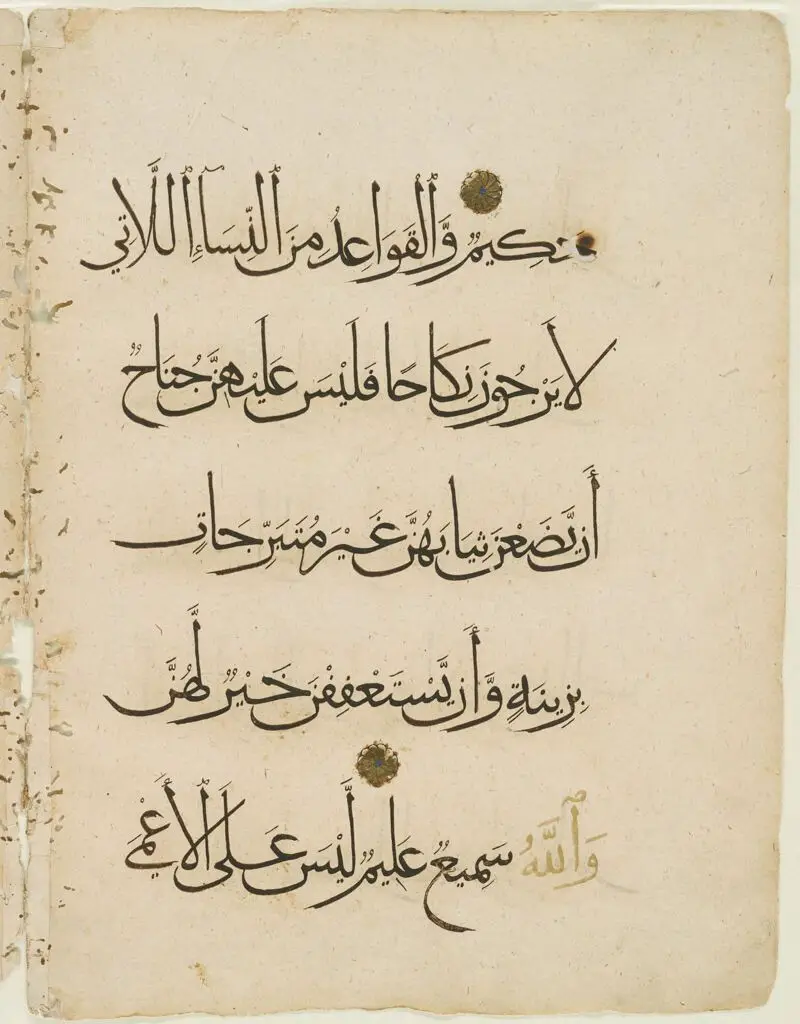 حَكِيمٌ وَّٱلْقَوَاعِدُ مِنَ ٱلنِّسَاءِ ٱللَّاتِي
لَا يَرْجُونَ نِكَاحًا فَلَيْسَ عَلَيْهِنَّ جُنَاحٌ
أَن يَّضَعْنَ ثِيَابَهُنَّ غَيْرَ مُتَبَرِّجَاتٍ
بِزِينَةٍ وَّأَن يَّسْتَعْفِفْنَ خَيْرٌ لَّهُنَّ
وَٱللَّهُ سَمِيعٌ عَلِيمٌ لَّيْسَ عَلَى ٱلْأَعْمَى